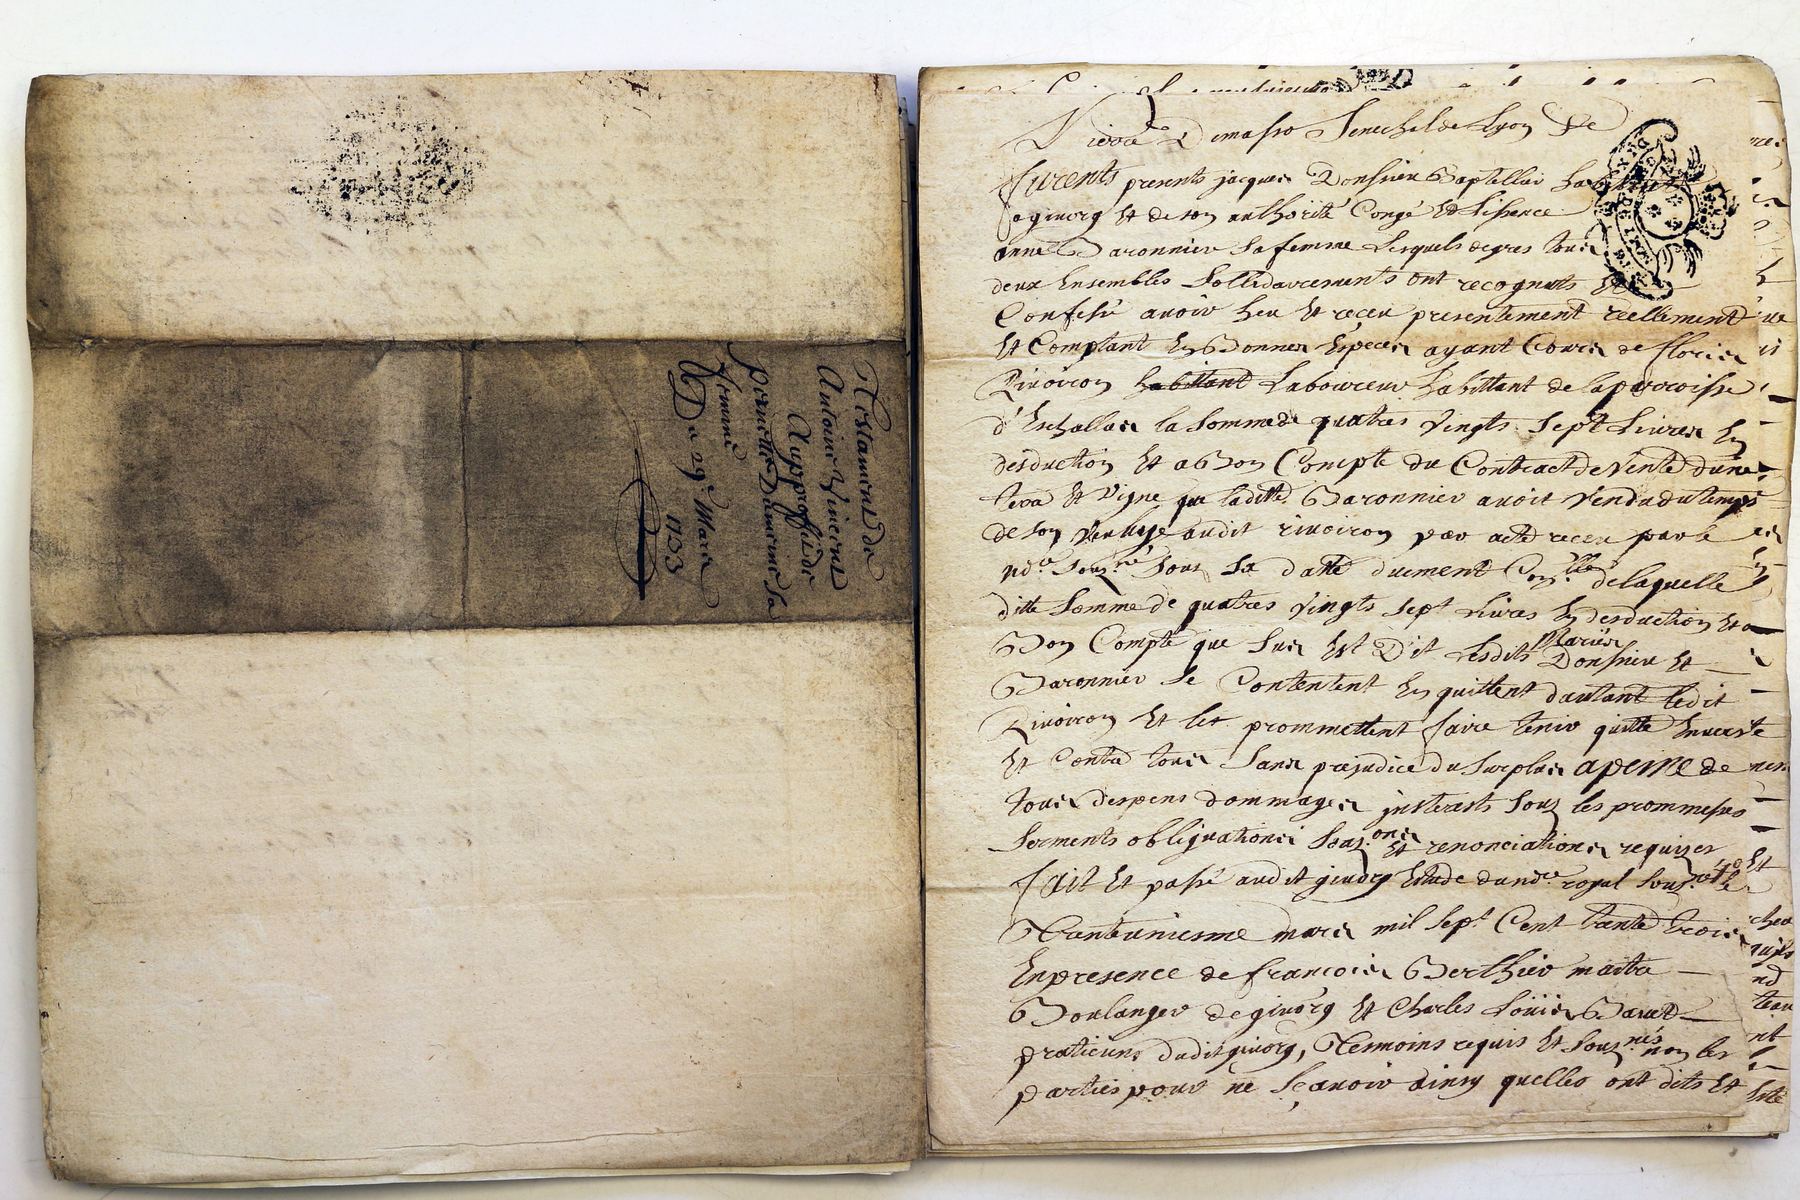 Testament de
Antoine Vincent
Au proffit de
pernette Damevine sa
femme
Du 29e Mars
1733
Pierre Demasso Senechal de Lyon
furents presents jacques Donsieu Baptellier
a givorg et de son authorité Congé et Lissence
anne Baronnier sa femme Lesquels de gres tous
deux Ensembles Sollidairements ont recognuts Et
Confessé avoir heu Et receu presentement reellement
Et Comptant En Bonnes Espèces ayant Cours de fleuris
Rivoiron habittant Laboureur habittant de la parroisse
d'Eschallas la Somme de quatres vingts Sept Livres En
desduction Et a Bon Compte du Contract de Vente d'une
terre Et Vigne que laditte Baronnier avoit Vendu du temps
de son Veufvge audit rivoiron par acte receu par le
ndre. souz.né Souz Sa datte duement Con.llé de laquelle
ditte Somme de quatres Vingts Sept Livres En desduction Et a
Bon Compte que Sus Est Dit Lesdits Mariés Donsieu Et
Baronnier Se Contentent En quittent dautant ledit
Rivoiron Et let prommettent faire tenir quitte Enverste
Et Contre tous Sans prejudice du Surplus a peine de
tous despens dommages jnterests Souz les prommesses
Serments obligations Souz.ons Et renonciations requises
fait Et passé audit givorg Estude du ndre. royal Souz.né le
Trenteuniesme mars mil Sept Cent trante trois
En presence de francois Berthier maitre
Boulanger de givorg Et Charles Louis Baret
praticiens dudit givorg, Tesmoins requis Et Souz.nés non les
parties pour ne Sçavoir ainsy quelles ont dits Et